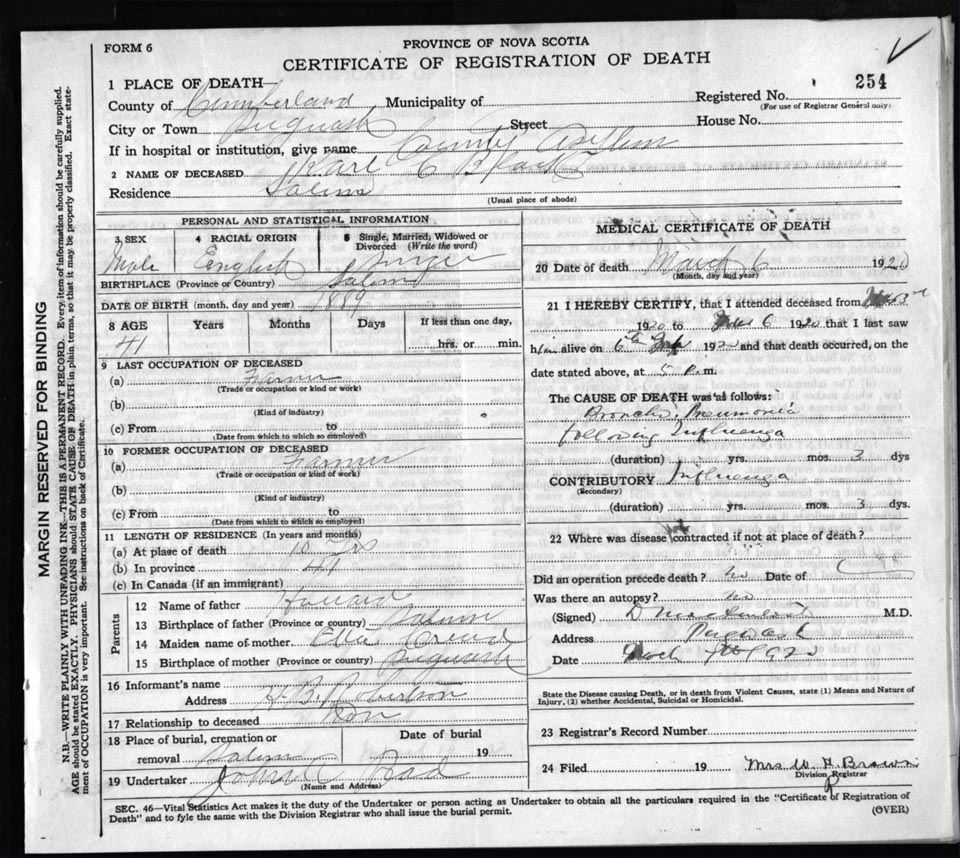 FORM 6
PROVINCE OF NOVA SCOTIA
CERTIFICATE OF REGISTRATION OF DEATH
1 PLACE OF DEATH
Registered No. 254
(For use of Registrar General only)
County of Cumberland Municipality of
City or Town Pugwash Street House No.
If in hospital or institution, give name County Asylum
2 NAME OF DECEASED Karl C Black
Residence Salem
(Usual place of abode)
PERSONAL AND STATISTICAL INFORMATION
3 SEX Male
4 RACIAL ORIGIN English
5 Single, Married, Widowed or Divorced (Write the word) Single
BIRTHPLACE (Province or Country) Salem
DATE OF BIRTH (month, day and year) 1889
8 AGE Years Months Days If less than one day,
41 hrs. or min.
9 LAST OCCUPATION OF DECEASED
(a) Farmer
(Trade or occupation or kind or work)
(b)
(Kind of industry)
(c) From to
(Date from which to which so employed)
10 FORMER OCCUPATION OF DECEASED
(a) Farmer
(Trade or occupation or kind of work)
(b)
(Kind of industry)
(c) From to
(Date from which to which so employed)
11 LENGTH OF RESIDENCE (In years and months)
(a) At place of death 10 yrs
(b) In province 41
(c) In Canada (if an immigrant)
Parents
12 Name of father Howard
13 Birthplace of father (Province or country) Salem
14 Maiden name of mother
15 Birthplace of mother (Province or country) Pugwash
16 Informant's name
Address R. B. Robertson
17 Relationship to deceased
18 Place of burial, cremation or removal Salem
Date of burial 19
19 Undertaker John
(Name and Address)
MEDICAL CERTIFICATE OF DEATH
20 Date of death March 6 1920
(Month, day and year)
21 I HEREBY CERTIFY, that I attended deceased from
1920 to 6 1920 that I last saw
him alive on 6th 1920 and that death occurred, on the
date stated above, at 5 P. m.
The CAUSE OF DEATH was as follows:
Broncho Pneumonia
following Influenza
(duration) yrs. mos. 3 dys
CONTRIBUTORY Influenza
(Secondary)
(duration) yrs. mos. 3 dys.
22 Where was disease contracted if not at place of death?
Did an operation precede death? no Date of
Was there an autopsy? no
(Signed) M.D.
Address Pugwash
Date
State the Disease causing Death, or in death from Violent Causes, state (1) Means and Nature of
Injury, (2) whether Accidental, Suicidal or Homicidal.
23 Registrar's Record Number
24 Filed 19 Mrs W H Brown
Division Registrar
SEC. 46—Vital Statistics Act makes it the duty of the Undertaker or person acting as Undertaker to obtain all the particulars required in the "Certificate of Registration of
Death" and to fyle the same with the Division Registrar who shall issue the burial permit.
(OVER)
MARGIN RESERVED FOR BINDING
N.B.—WRITE PLAINLY WITH UNFADING INK—THIS IS A PERMANENT RECORD. Every item of information should be carefully supplied.
AGE should be stated EXACTLY. PHYSICIANS should STATE CAUSE OF DEATH in plain terms, so that it may be properly classified. Exact state-
ment of OCCUPATION is very important. See instructions on back of Certificate.